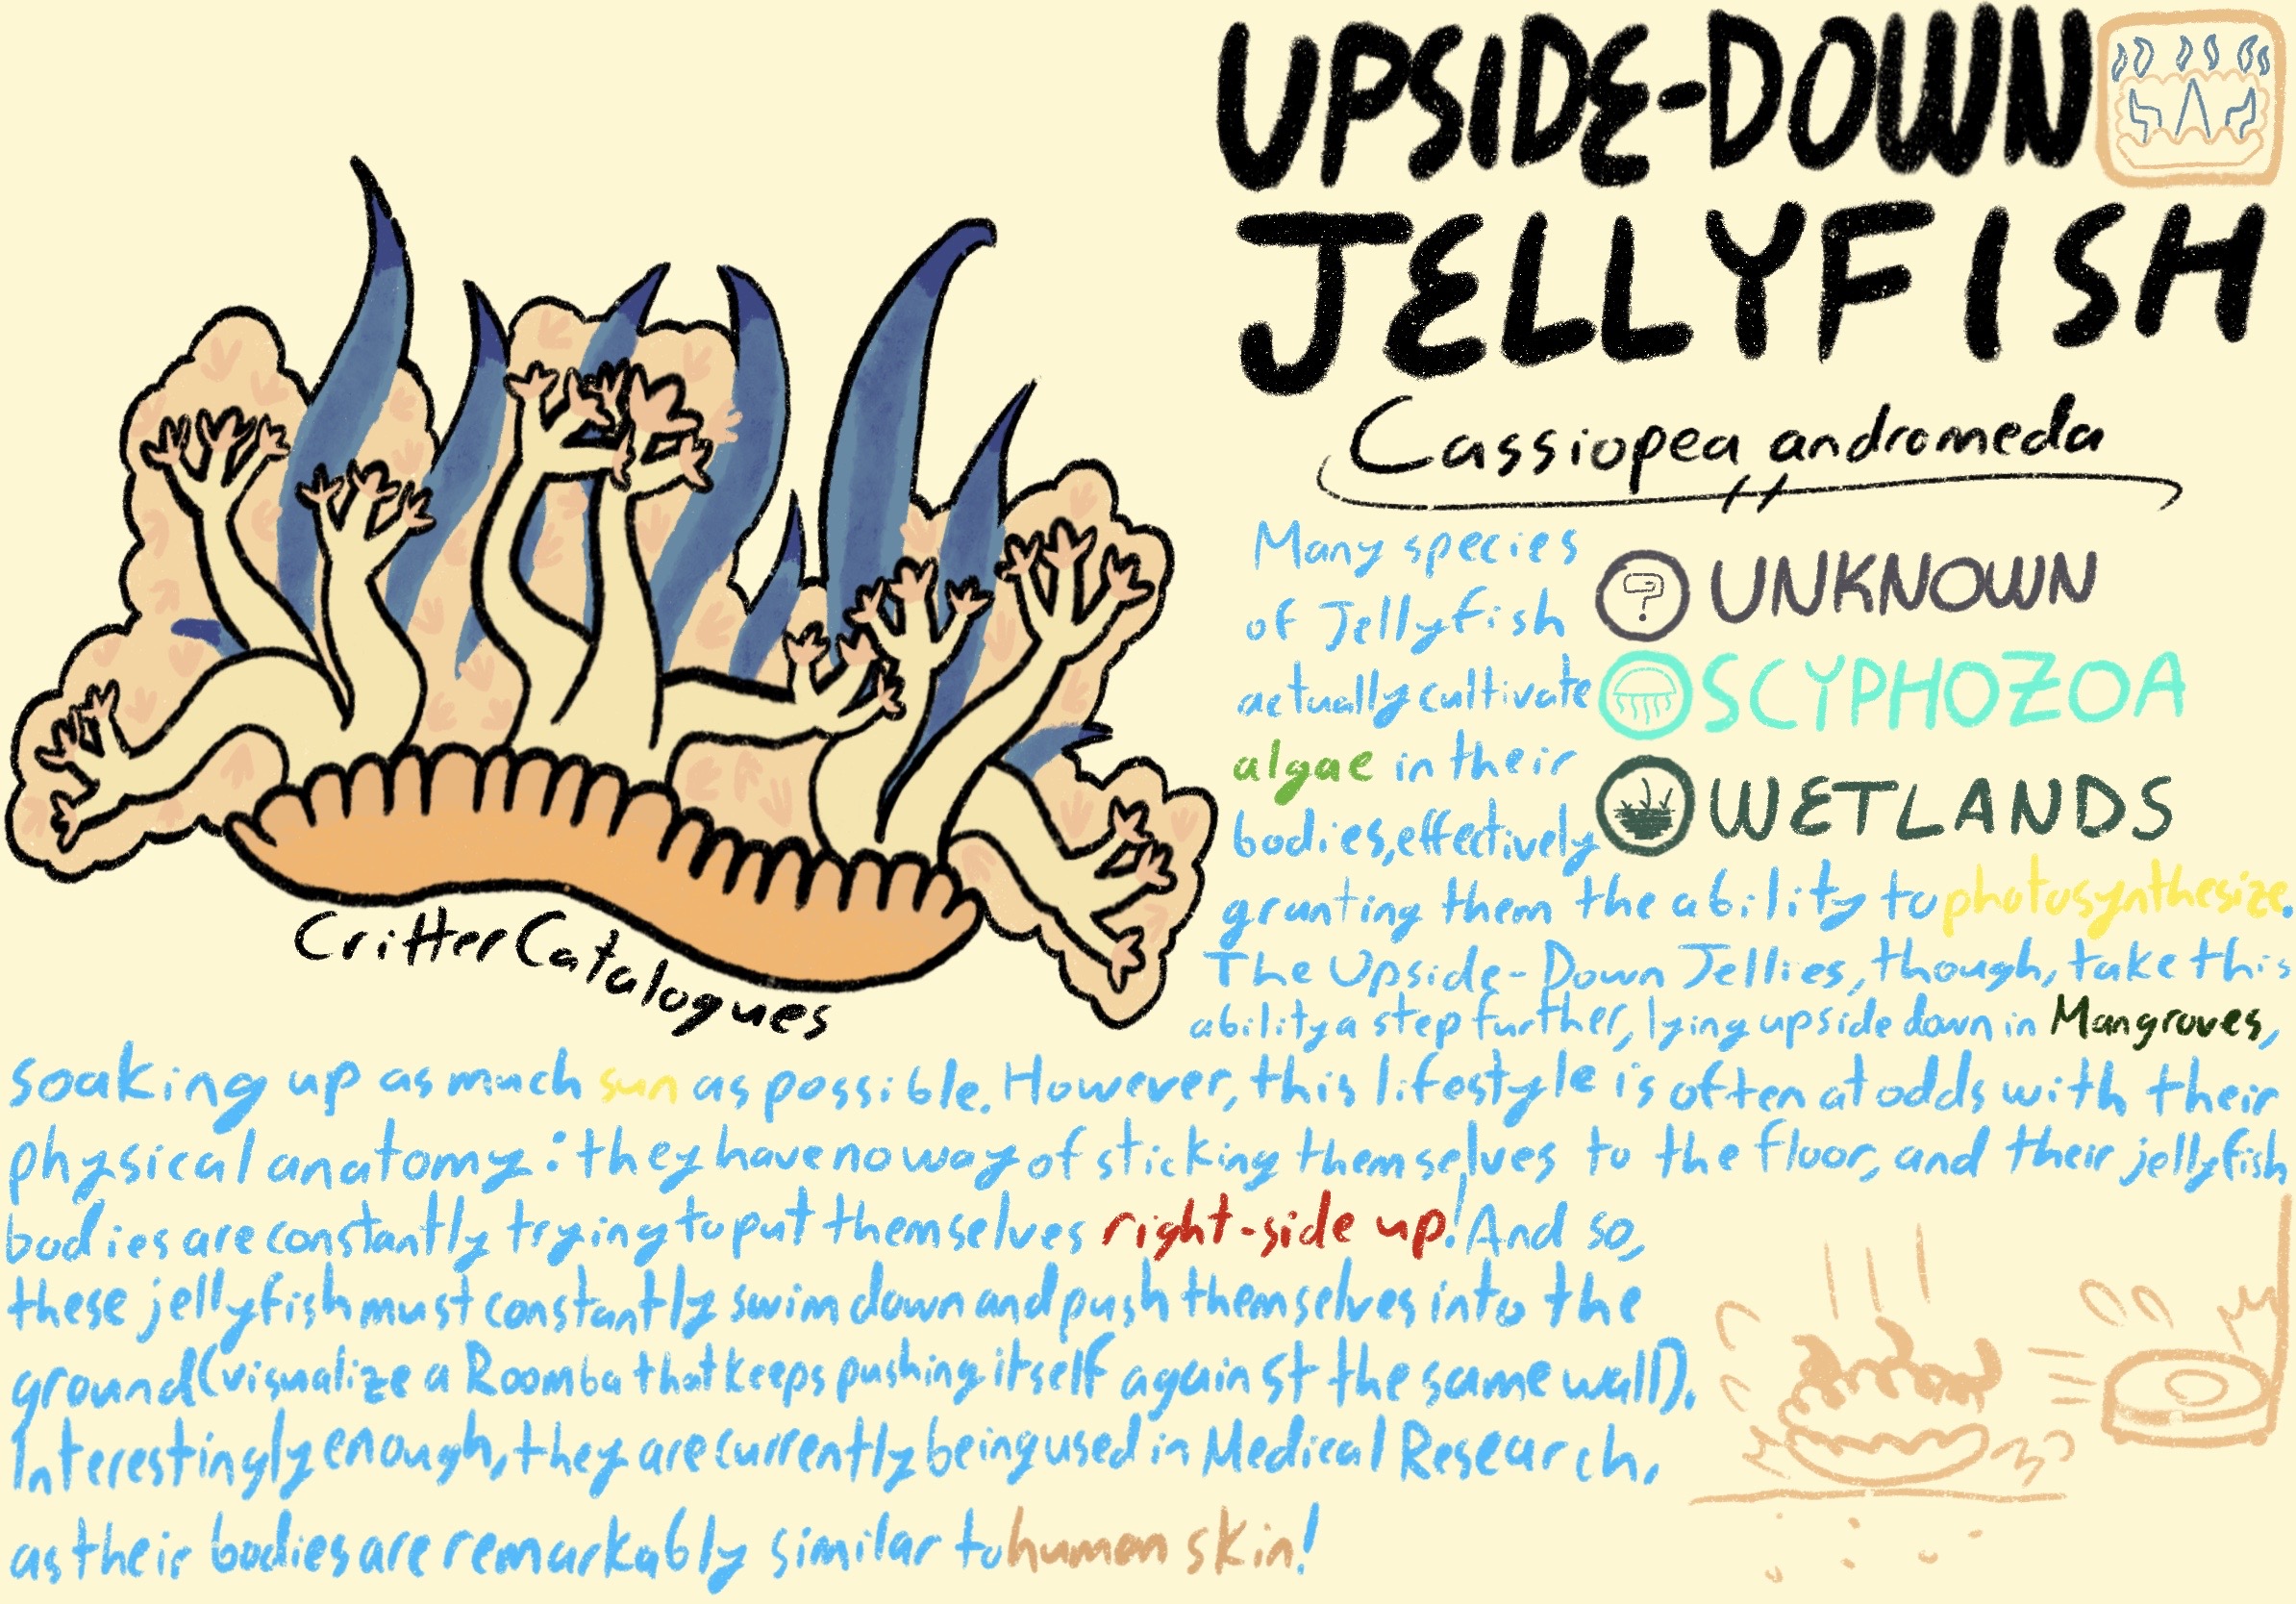 UPSIDE-DOWN
JELLYFISH
Cassiopea andromeda
UNKNOWN
SCYPHOZOA
WETLANDS
Many species
of Jellyfish
actually cultivate
algae in their
bodies, effectively
granting them the ability to photosynthesize.
The Upside-Down Jellies, though, take this
ability a step further, lying upside down in Mangroves,
soaking up as much sun as possible. However, this lifestyle is often at odds with their
physical anatomy: they have no way of sticking themselves to the floor, and their jellyfish
bodies are constantly trying to put themselves right-side up! And so,
these jellyfish must constantly swim down and push themselves into the
ground (visualize a Roomba that keeps pushing itself against the same wall).
Interestingly enough, they are currently being used in Medical Research,
as their bodies are remarkably similar to human skin!
CritterCatalogues